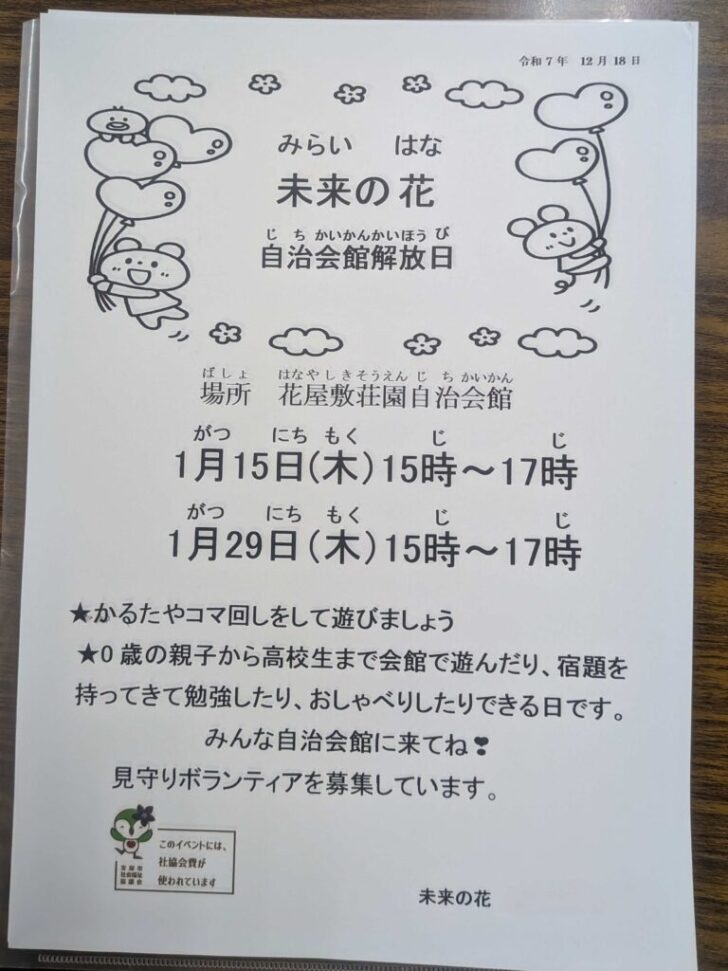 令和7年　12月18日
みらい　はな
未来の花
じちかいかんかいほうび
自治会館解放日
ばしょ　はなやしきそうえんじちかいかん
場所　花屋敷荘園自治会館
がつ　にち　もく　じ　じ
1月15日(木)15時～17時
がつ　にち　もく　じ　じ
1月29日(木)15時～17時
★かるたやコマ回しをして遊びましょう
★0歳の親子から高校生まで会館で遊んだり、宿題を
持ってきて勉強したり、おしゃべりしたりできる日です。
みんな自治会館に来てね❣
見守りボランティアを募集しています。
このイベントには、
社協会費が
使われています
社会福祉
協議会
未来の花